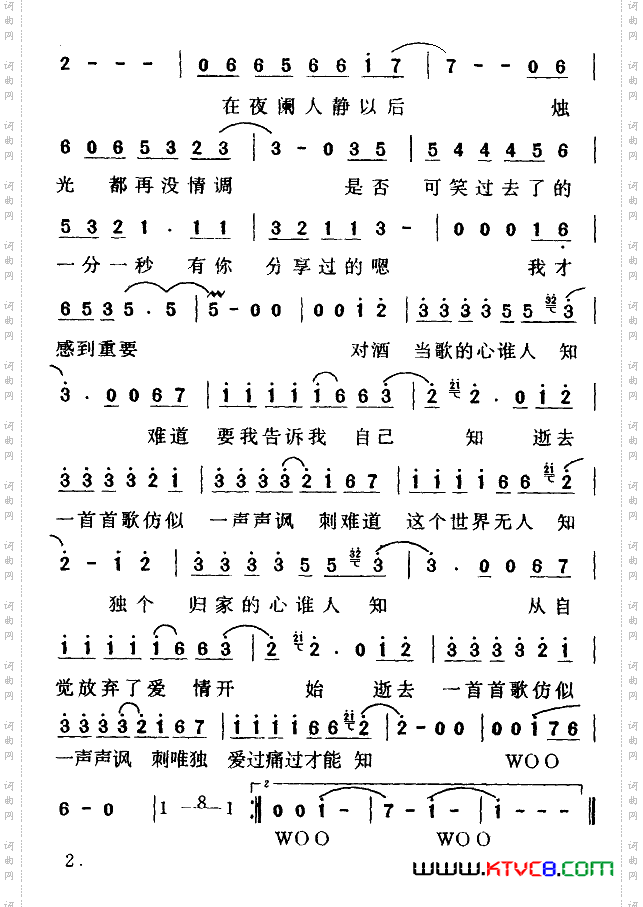 2 - - - | 0 6 6 5 6 6 i 7 | 7 - - 0 6 |
在夜阑人静以后 烛
6 0 6 5 3 2 3 | 3 - 0 3 5 | 5 4 4 4 5 6 |
光 都再没情调 是否 可笑过去了的
5 3 2 1 · 1 1 | 3 2 1 1 3 - | 0 0 0 1 6 |
一分一秒 有你 分享过的嗯 我才
6 5 3 5 · 5 | 5 - 0 0 | 0 0 i 2 | 3 3 3 3 5 5 3 |
感到重要 对酒 当歌的心谁人 知
3 · 0 0 6 7 | i i i i i 6 6 3 | 2 2 · 0 i 2 |
难道 要我告诉我 自己 知 逝去
3 3 3 3 2 i | 3 3 3 3 2 i 6 7 | i i i i 6 6 2 |
一首首歌仿似 一声声讽 刺难道 这个世界无人 知
2 - i 2 | 3 3 3 3 5 5 3 | 3 · 0 0 6 7 |
独个 归家的心谁人 知 从自
i i i i i 6 6 3 | 2 2 · 0 i 2 | 3 3 3 3 2 i |
觉放弃了爱 情开 始 逝去 一首首歌仿似
3 3 3 3 2 i 6 7 | i i i i 6 6 2 | 2 - 0 0 | 0 0 i 7 6 |
一声声讽 刺唯独 爱过痛过才能 知 WOO
6 - 0 | 1 — 8 — 1 :‖ 2 0 0 i - | 7 - i - | i - - - ‖
WOO WOO
2.
www.KTVC8.com
词曲网